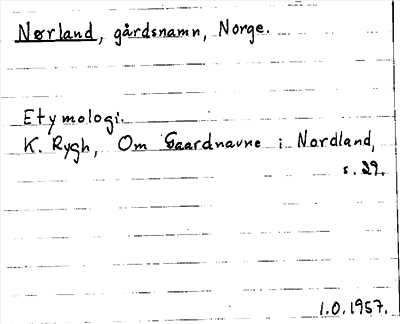 Nørland, gårdsnamn, Norge.
Etymologi.
K. Rygh, Om Gaardnavne i Nordland,
s. 29.
1.0.1957.